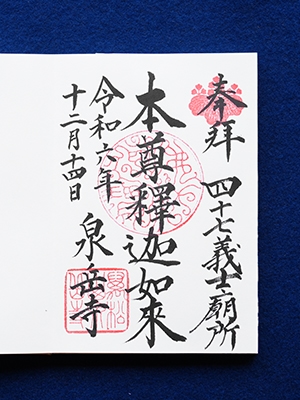 奉拝 四十七義士廟所
本尊釋迦如來
令和六年
十二月十四日
泉岳寺